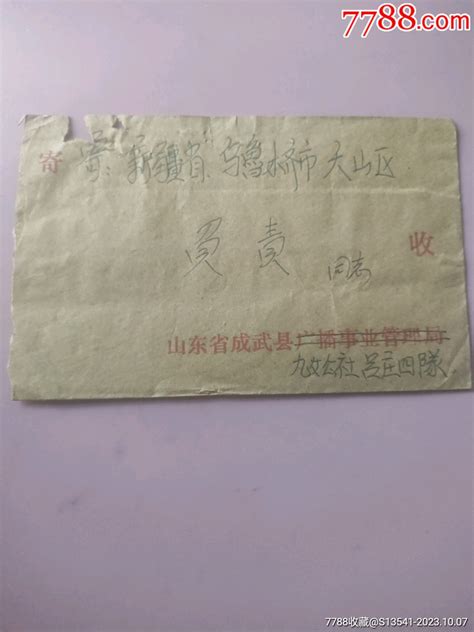 7788.com
寄 寄:新疆省、乌鲁木齐市天山区
责 同志 收
山东省成武县广播事业管理局
九女公社吕庄四隊
7788收藏@S13541-2023.10.07